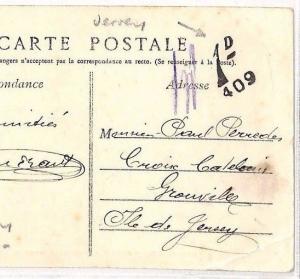 Jersey
CARTE POSTALE
angers n'acceptent pas la correspondance au recto. (Se renseigner à la Poste).
ondance
Adresse
1D
409
Monsieur Paul Perredes
Croix Catelain
Grouville
Ile de Jersey
mitiés